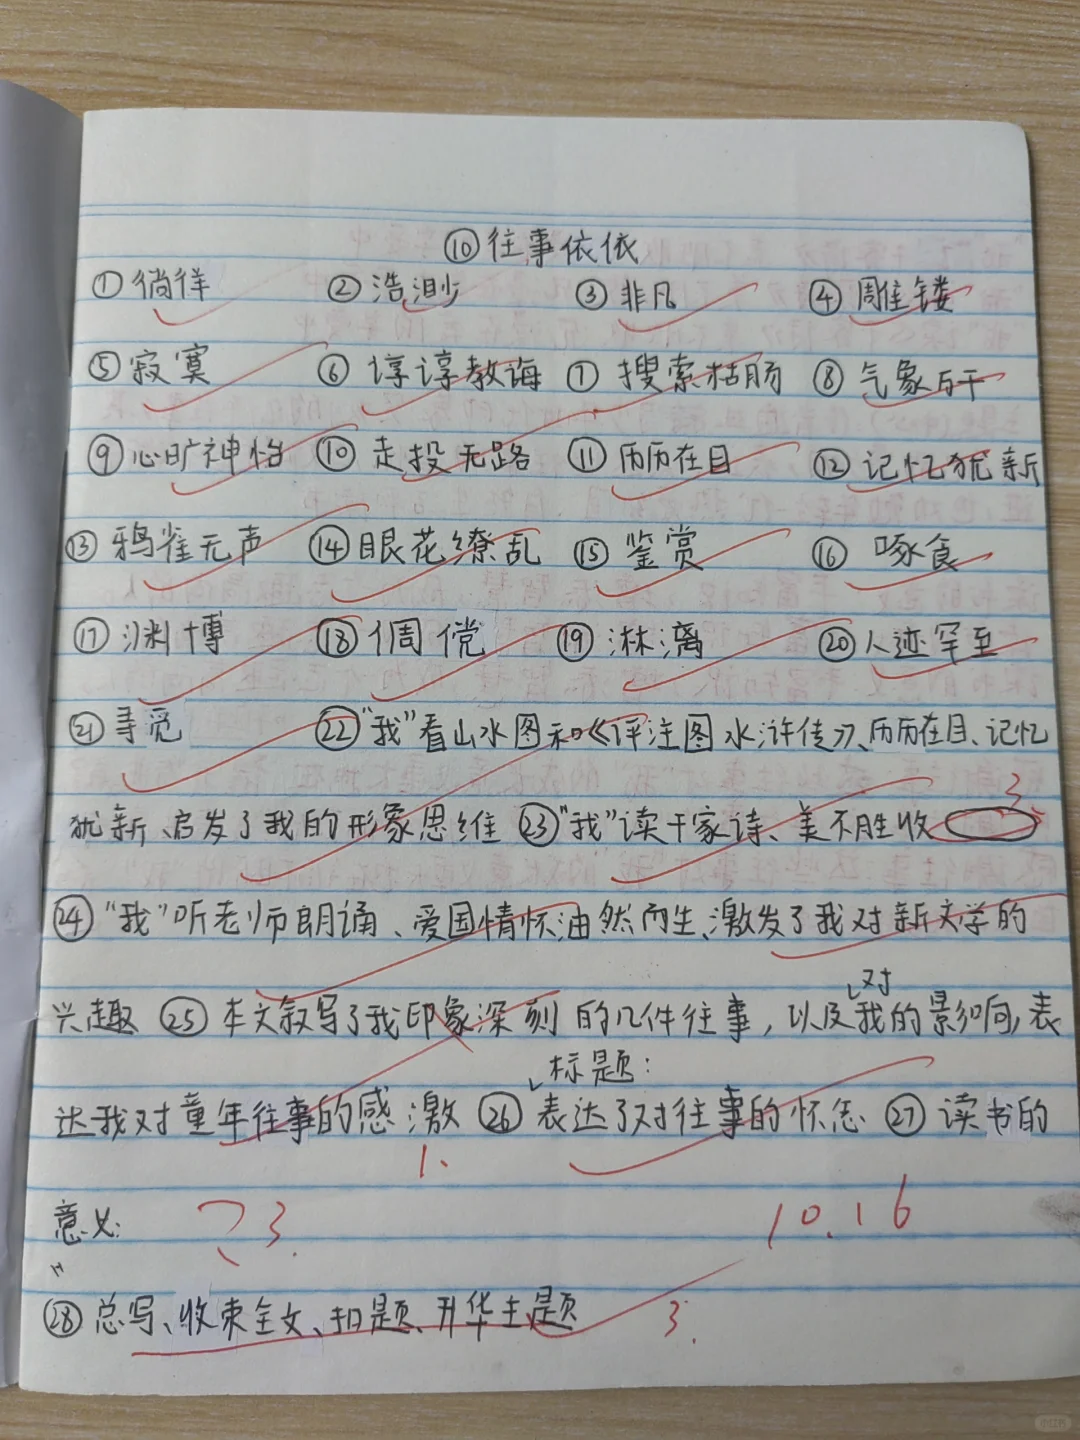 ⑩往事依依
①徜徉 ②浩渺 ③非凡 ④雕镂
⑤寂寞 ⑥谆谆教诲 ⑦搜索枯肠 ⑧气象万千
⑨心旷神怡 ⑩走投无路 ⑪历历在目 ⑫记忆犹新
⑬鸦雀无声 ⑭眼花缭乱 ⑮鉴赏 ⑯啄食
⑰渊博 ⑱倜傥 ⑲淋漓 ⑳人迹罕至
㉑寻觅 ㉒“我”看山水图和《评注图水浒传》、历历在目、记忆
犹新、启发了我的形象思维 ㉓“我”读千家诗、美不胜收 3
㉔“我”听老师朗诵、爱国情怀油然而生、激发了我对新文学的
兴趣 ㉕本文叙写了我印象深刻的几件往事，以及对我的影响，表
达我对童年往事的感激 ㉖标题：表达了对往事的怀念 ㉗读书的
1.
意义： 3. 10.16
㉘总写、收束全文、扣题、升华主题 3.